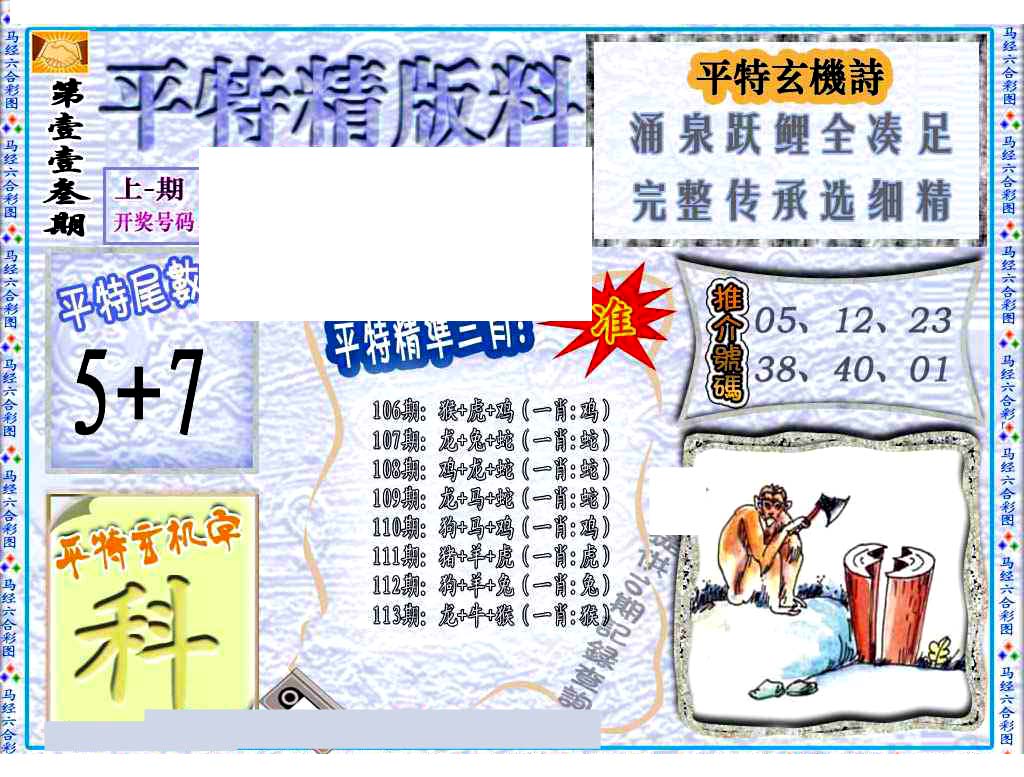 第壹壹叁期
平特精版料
上-期
开奖号码
平特玄機詩
涌泉跃鲤全凑足
完整传承选细精
平特尾數
5+7
平特精準三肖!
准
推介號碼
05、12、23
38、40、01
106期：猴+虎+鸡（一肖:鸡）
107期：龙+兔+蛇（一肖:蛇）
108期：鸡+龙+蛇（一肖:蛇）
109期：龙+马+蛇（一肖:蛇）
110期：狗+马+鸡（一肖:鸡）
111期：猪+羊+虎（一肖:虎）
112期：狗+羊+兔（一肖:兔）
113期：龙+牛+猴（一肖:猴）
平特玄机字
科
期記錄查詢
马经六合彩图 马经六合彩图 马经六合彩图 马经六合彩图 马经六合彩图 马经六合彩图 马经六合彩
马经六合彩图 马经六合彩图 马经六合彩图 马经六合彩图 马经六合彩图 马经六合彩图 马经六合彩图